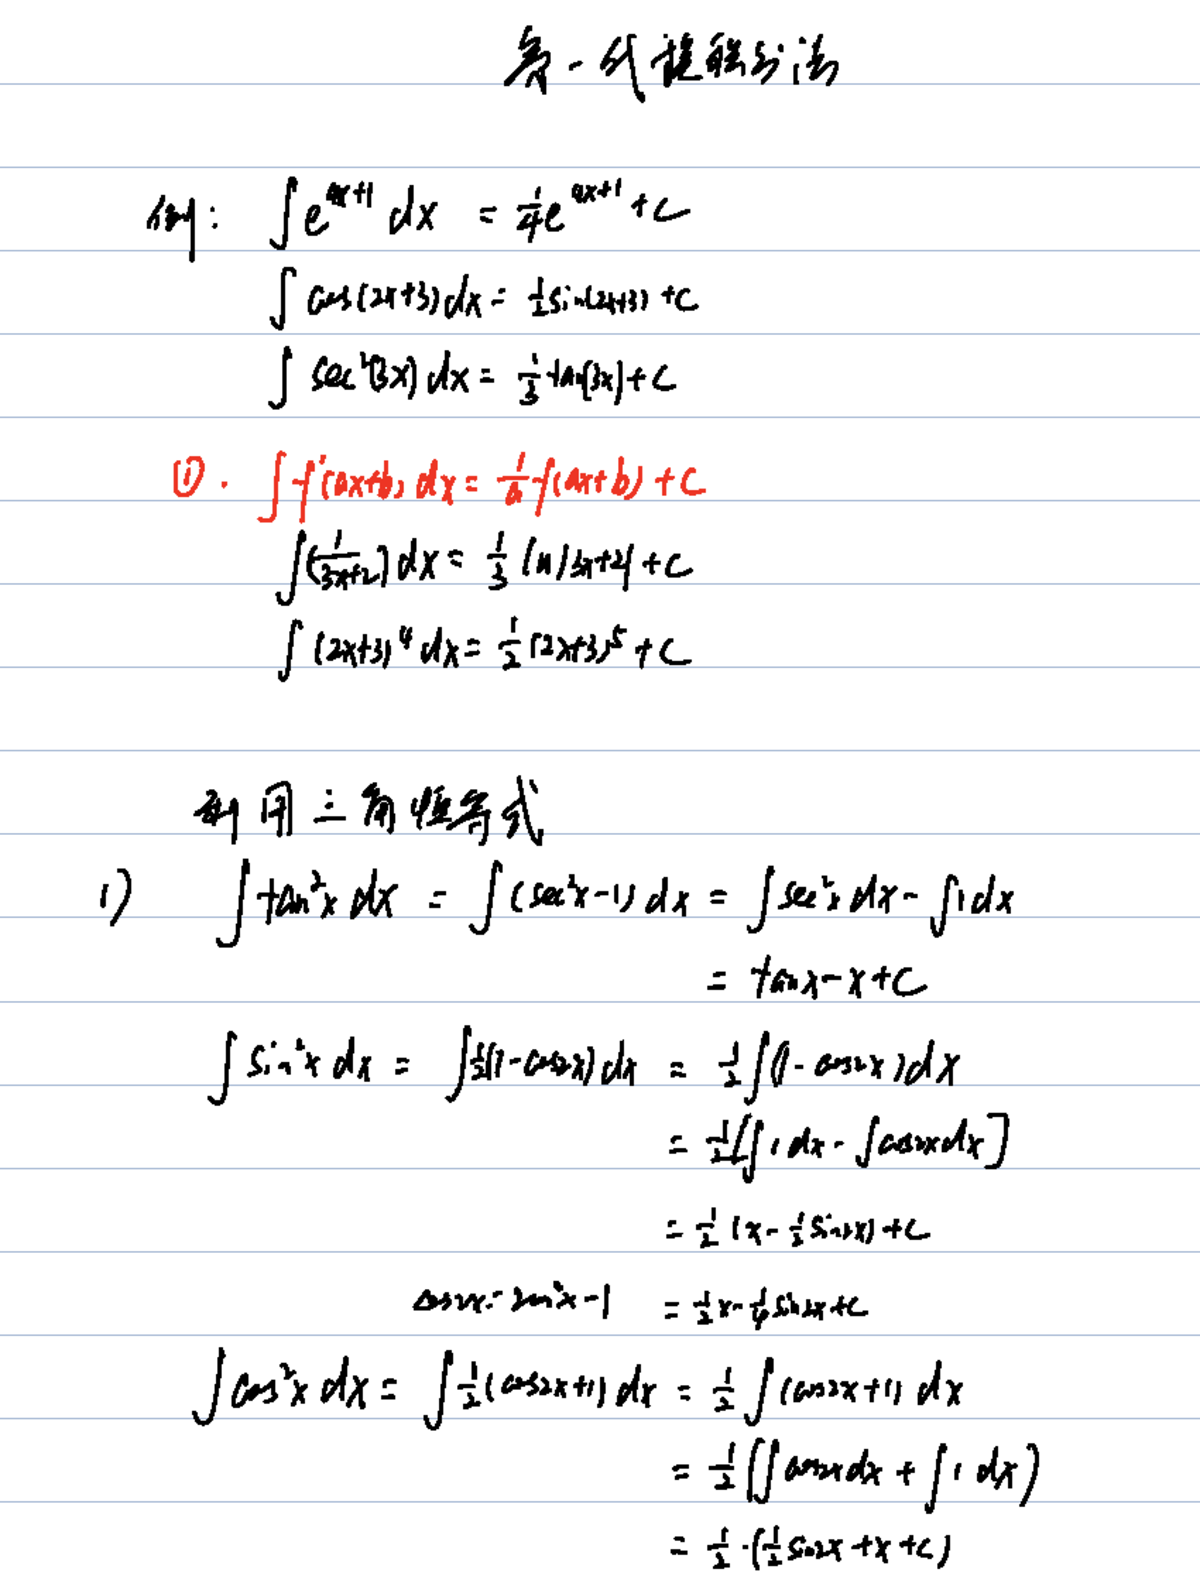 第一代换积分法
例: ∫e^{4x+1} dx = 1/4 e^{4x+1} + C
∫cos(2x+3) dx = 1/2 sin(2x+3) + C
∫sec²(3x) dx = 1/3 tan(3x) + C
①. ∫f'(ax+b) dx = 1/a f(ax+b) + C
∫(1/(3x+2)) dx = 1/3 ln|3x+2| + C
∫(2x+3)⁴ dx = 1/2 (2x+3)⁵ + C
利用三角恒等式
1) ∫tan²x dx = ∫(sec²x-1) dx = ∫sec²x dx - ∫1 dx
= tanx - x + C
∫sin²x dx = ∫1/2(1-cos2x) dx = 1/2∫(1-cos2x) dx
= 1/2[∫1 dx - ∫cos2x dx]
= 1/2 (x - 1/2 sin2x) + C
cos2x = 2cos²x-1 = 1/2 x - 1/4 sin2x + C
∫cos²x dx = ∫1/2(cos2x+1) dx = 1/2∫(cos2x+1) dx
= 1/2(∫cos2x dx + ∫1 dx)
= 1/2·(1/2 sin2x + x + C)